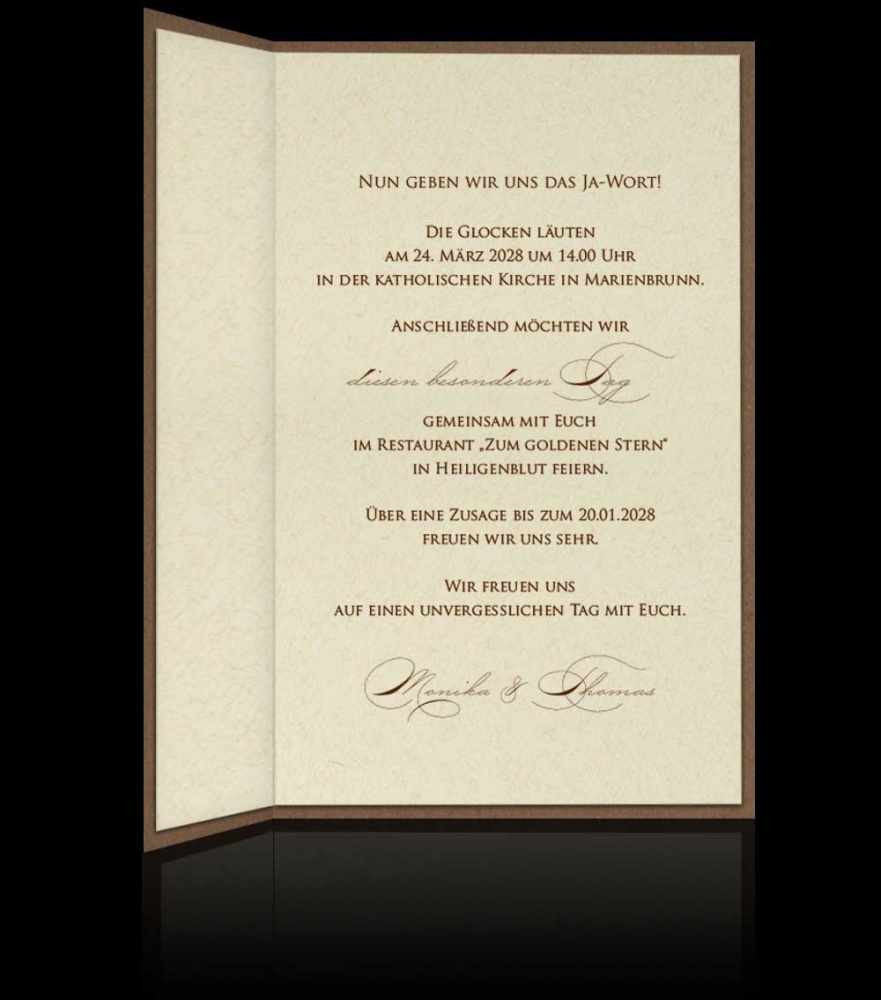 Nun geben wir uns das Ja-Wort!
Die Glocken läuten
am 24. März 2028 um 14.00 Uhr
in der katholischen Kirche in Marienbrunn.
Anschließend möchten wir
diesen besonderen Tag
gemeinsam mit Euch
im Restaurant „Zum goldenen Stern“
in Heiligenblut feiern.
Über eine Zusage bis zum 20.01.2028
freuen wir uns sehr.
Wir freuen uns
auf einen unvergesslichen Tag mit Euch.
Monika & Thomas